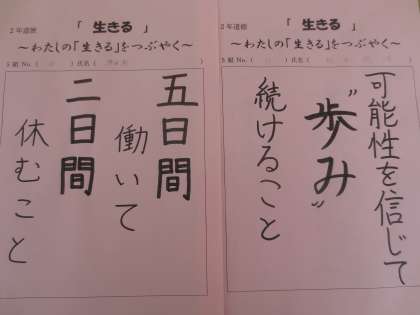 2年道徳
「 生きる 」
～わたしの「生きる」をつぶやく～
5組 No. ( ) 氏名 ( )
五日間
働いて
二日間
休むこと
2年道徳
「 生きる 」
～わたしの「生きる」をつぶやく～
5組 No. ( ) 氏名 ( )
可能性を信じて
“歩み”
続けること